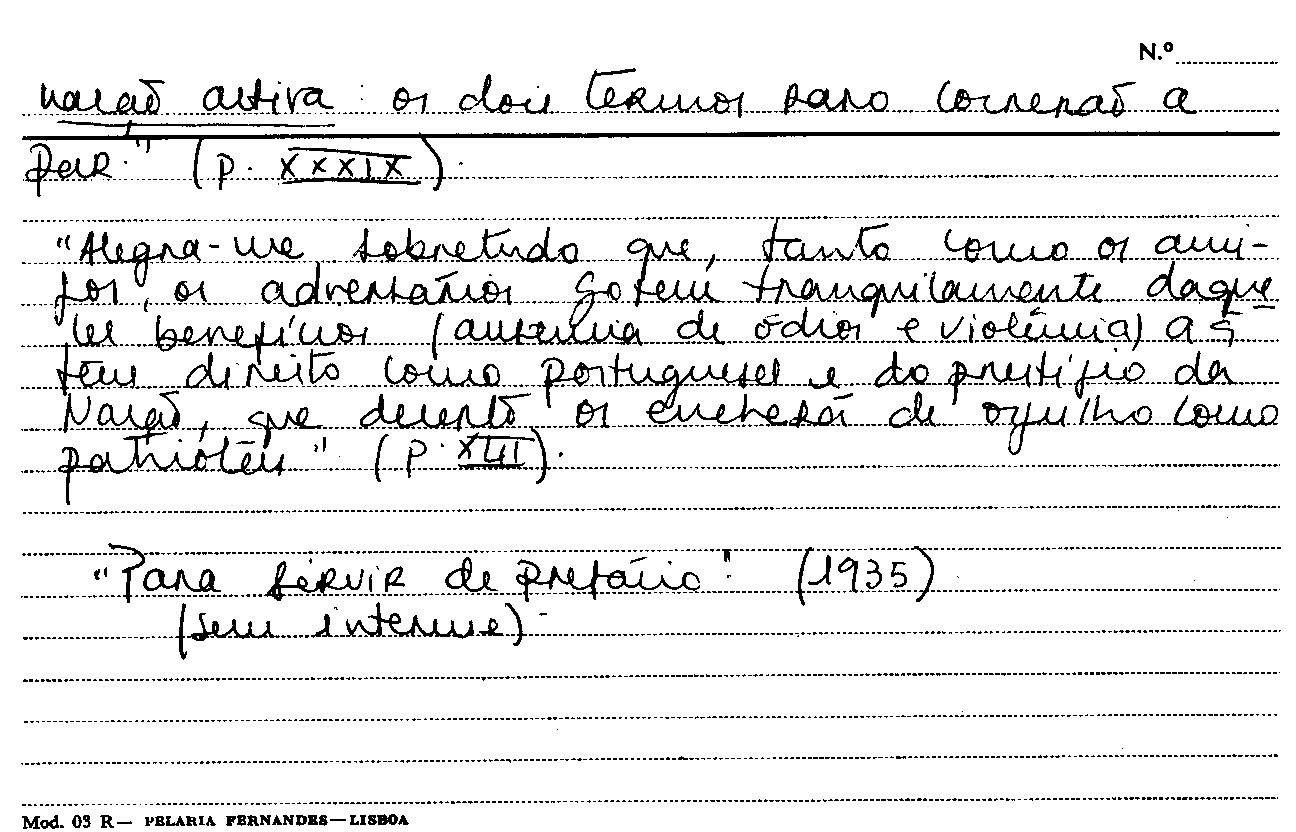 N.º
nação activa: os dois termos para correrão a
par." (p. XXXIX).
"Alegra-me sobretudo que, tanto como os ami-
gos, os adversários gozem tranquilamente daque
les benefícios (ausência de ódios e violência) a q̃
têm direito como portugueses e do prestígio da
Nação, que decerto os encherá de orgulho como
patriotas" (p. XLII).
"Para servir de prefácio". (1935)
(sem interesse)
Mod. 03 R— PELARIA FERNANDES—LISBOA